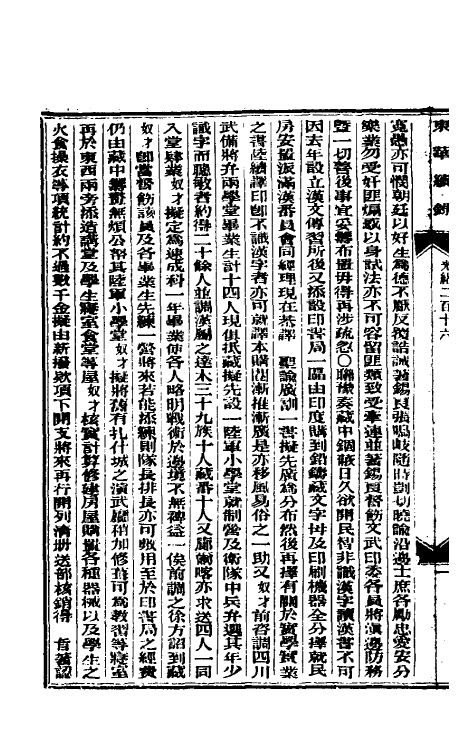 東華續錄　光緒二百十六
冤愚亦可憫朝廷以好生爲德不厭反覆誥誡著錫良張鳴岐隨時剴切曉諭沿邊士庶各勵忠愛安分
樂業勿受奸匪煽惑以身試法亦不可容留匪類致受牽連並著錫良督飭文武印委各員將滇邊防務
暨一切善後事宜妥籌布置毋得再涉疏忽○聯豫奏藏中錮蔽日久欲開民智非識漢字讀漢書不可
因去年設立漢文傳習所後又添設印書局一區由印度購到鉛鑄藏文字母及印刷機器全分擇就民
房安置派滿漢番員會同經理現在恭譯　聖諭廣訓一書擬先廣爲分布然後再擇有關於實學實業
之書陸續譯印卽不識漢字者亦可就譯本購閱漸推漸廣是亦移風易俗之一助又奴才前咨調四川
武備將弁兩學堂畢業生計十四人現俱抵藏擬先設一陸軍小學堂就制營及衞隊中兵弁選其年少
識字而聰敏者約得二十餘人並調漢屬之達木三十九族十人藏番十人又廓爾喀亦求送四人一同
入堂肄業奴才擬定爲速成科一年畢業使各人略明戰術於邊境不無裨益一俟前調之徐方詔到藏
奴才卽當督飭該員及各畢業生先練一營將來若能添練則隊長排長亦可敷用至於印書局之經費
仍由藏中籌措無煩公帑其陸軍小學堂奴才擬將舊有扎什城之演武廳稍加修葺可爲教習等寢室
再於東西兩旁添造講堂及學生寢室食堂等屋奴才核實計算修建房屋購置各種器械以及學生之
火食操衣等項統計約不過數千金擬由新撥欵項下開支將來再行開列清册送部核銷得　旨著認